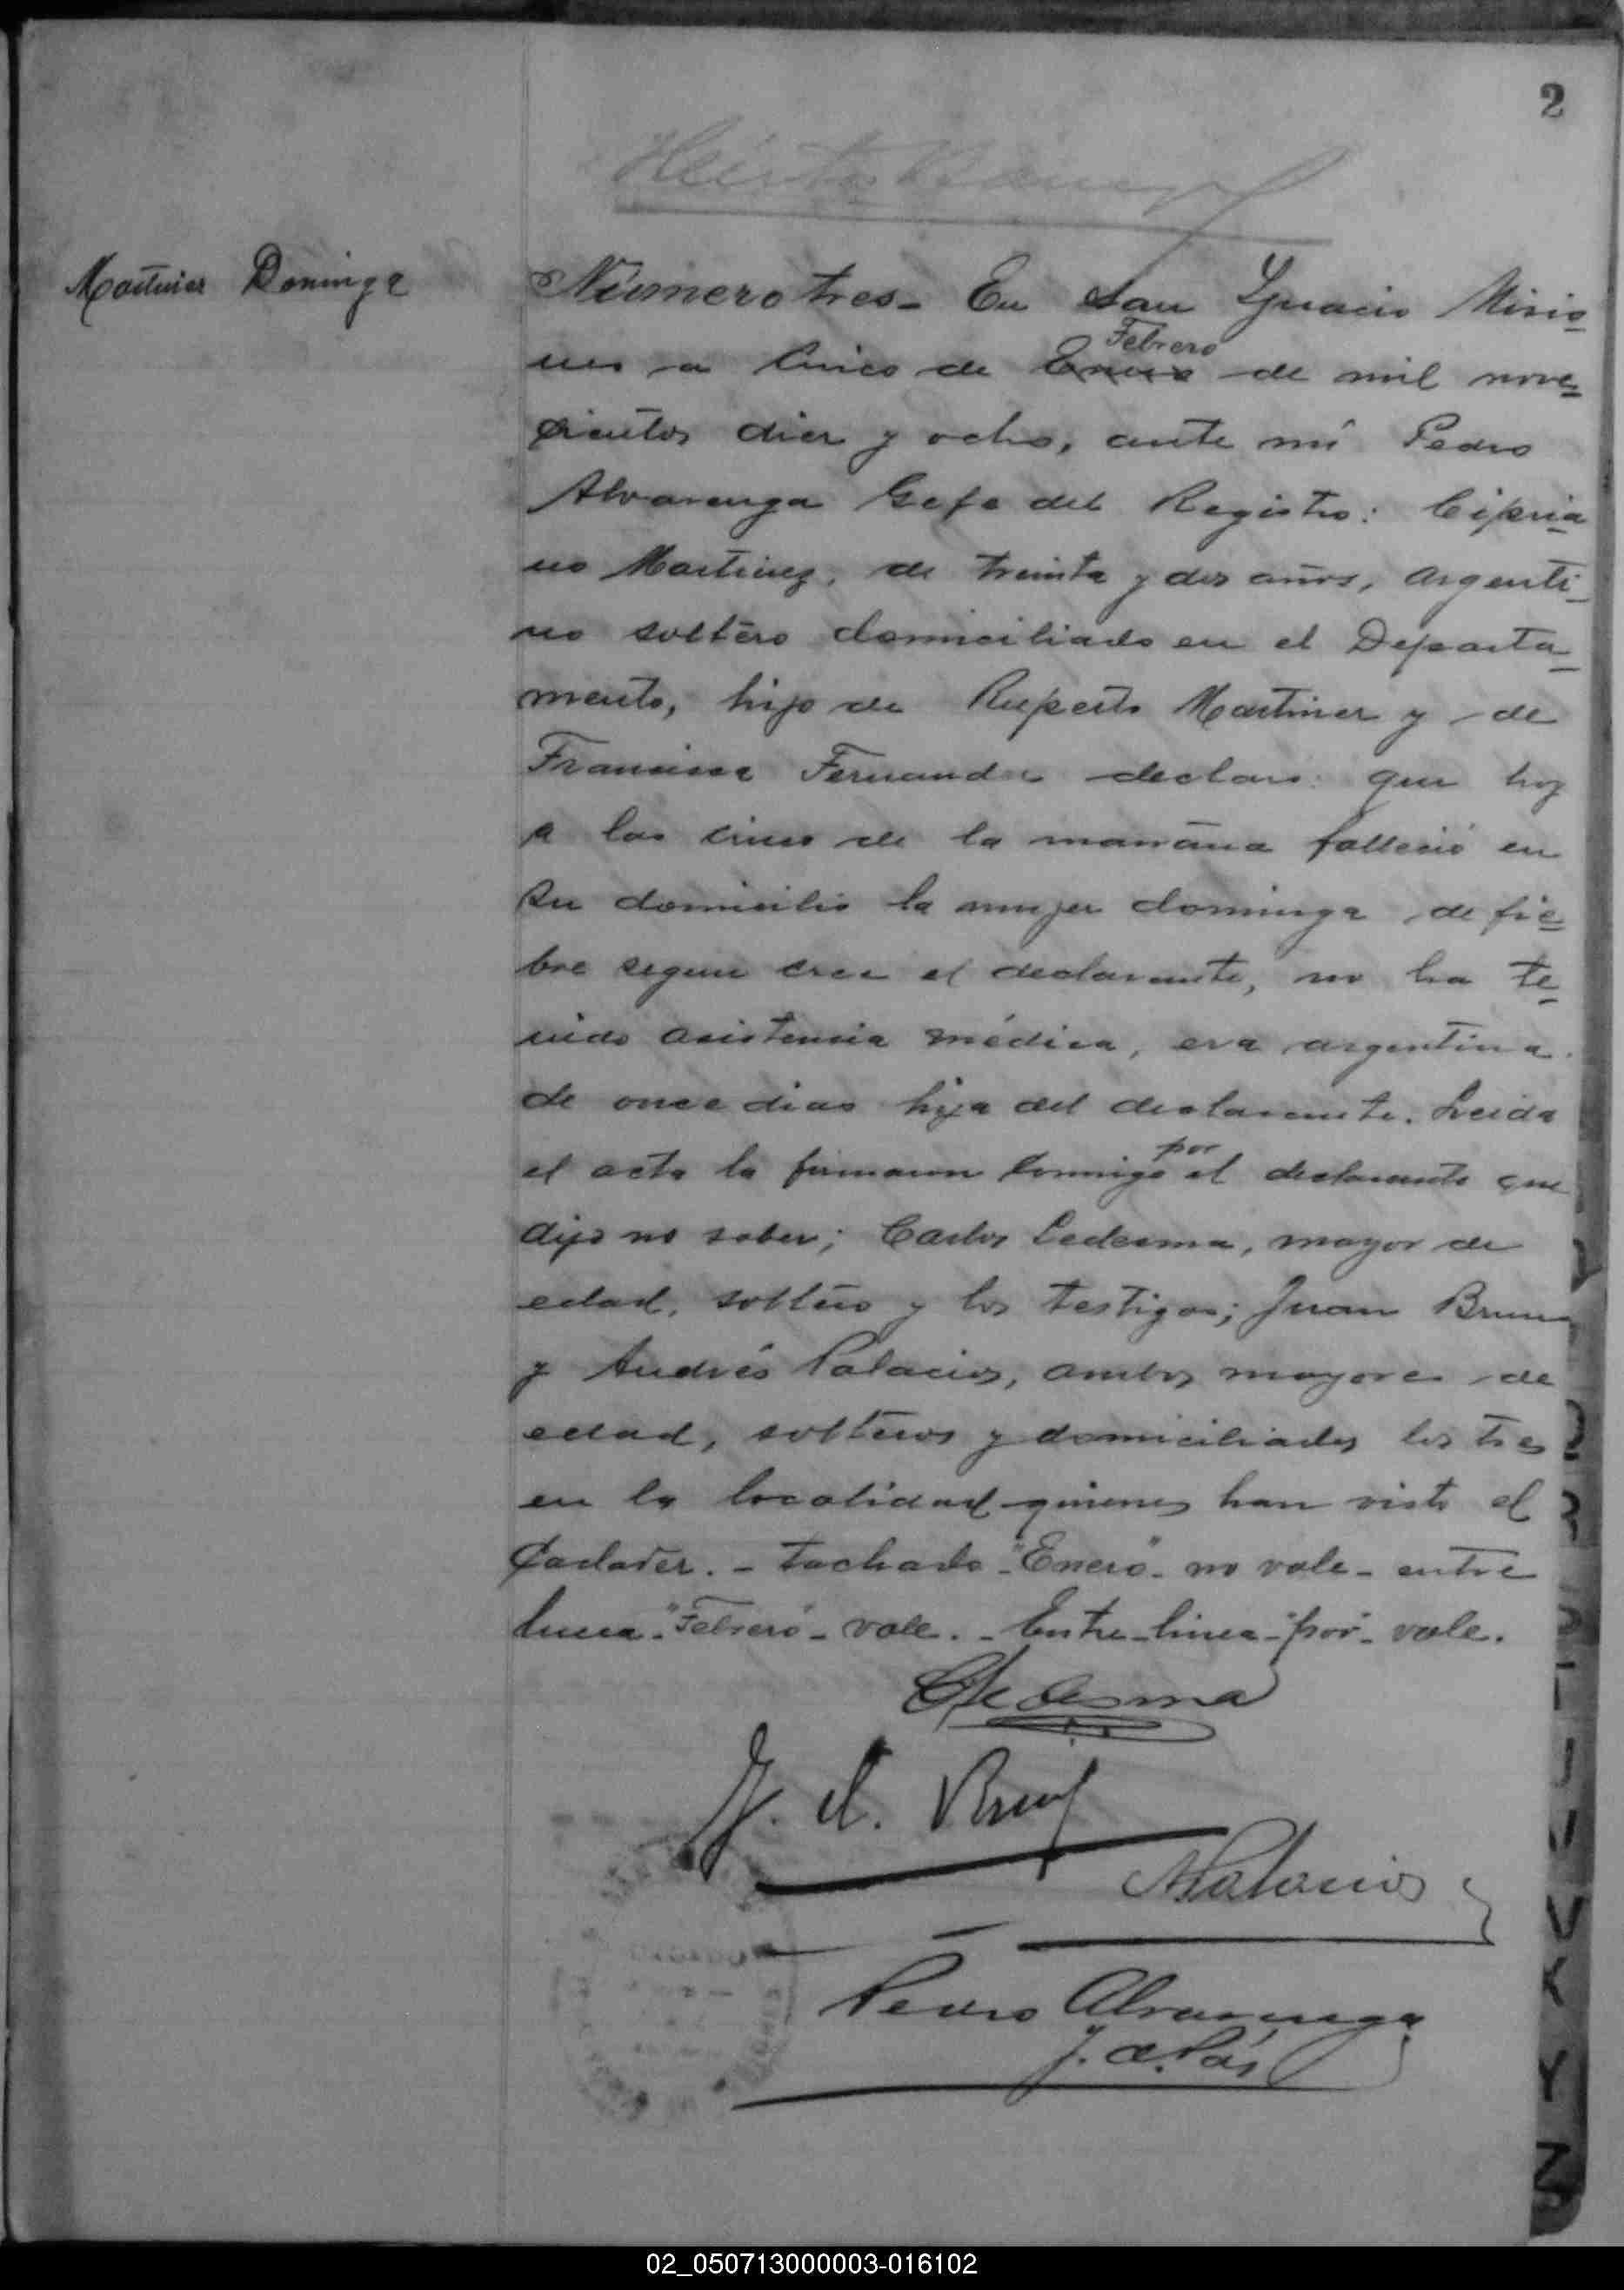 2
Martinez Dominga
Número tres - En San Ygnacio Misio
nes a cinco de Enero Febrero de mil nove
cientos diez y ocho, ante mí Pedro
Alvarenga Gefe del Registro: Cipria
no Martinez, de treinta y dos años, argenti
no soltero domiciliado en el Departa
mento, hijo de Ruperto Martinez y de
Francisca Fernandez declaro: que hoy
a las cinco de la mañana falleció en
su domicilio la mujer dominga, de fie
bre segun cree el declarante, no ha te
nido asistencia médica, era argentina.
de once dias hija del declarante. Leida
el acta la firmaron conmigo por el declarante que
dijo no saber; Carlos Ledesma, mayor de
edad, soltero y los testigos; Juan Brun
y Andrés Palacios, ambos mayores de
edad, solteros y domiciliados los tres
en la localidad quienes han visto el
Cadaver. - Tachado - "Enero" - no vale - entre
linea - "Febrero" - vale. - Entre-linea - "por" - vale.
CLedesma
J. A. Brun
APalacios
Pedro Alvarenga
J. de Paz
02_050713000003-016102